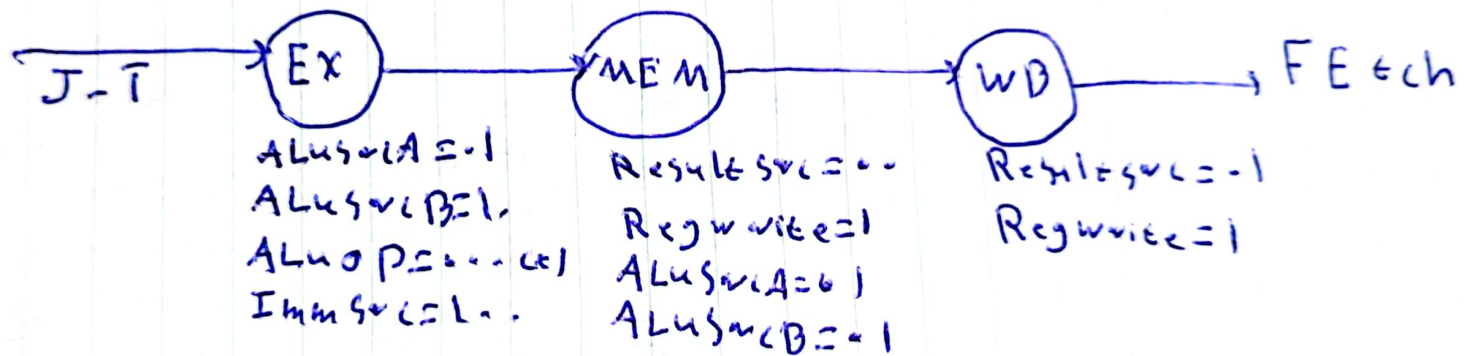 J-T
EX
MEM
WB
FEtch
ALuSrcA=01
ALuSrcB=10
ALuOP=000
ImmSrc=100
ResultSrc=00
Regwrite=1
ALuSrcA=01
ALuSrcB=01
Resultsrc=01
Regwrite=1